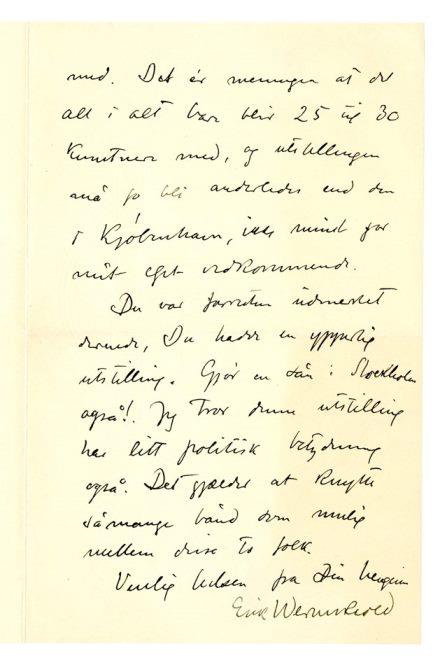 med. Det er meningen at det
alt i alt bare blir 25 til 30
kunstnere med, og utstillingen
må jo bli anderledes end den
i Kjöbenhavn, ikke mindst for
mit eget vedkommende.
Du var forresten udmerket
dernede, Du hadde en ypperlig
utstilling. Gjör en sån i Stockholm
også! Jeg tror denne utstilling
har litt politisk betydning
også. Det gjælder at knytte
så mange bånd som mulig
mellem disse to folk.
Venlig hilsen fra Din hengivne
Erik Werenskiold